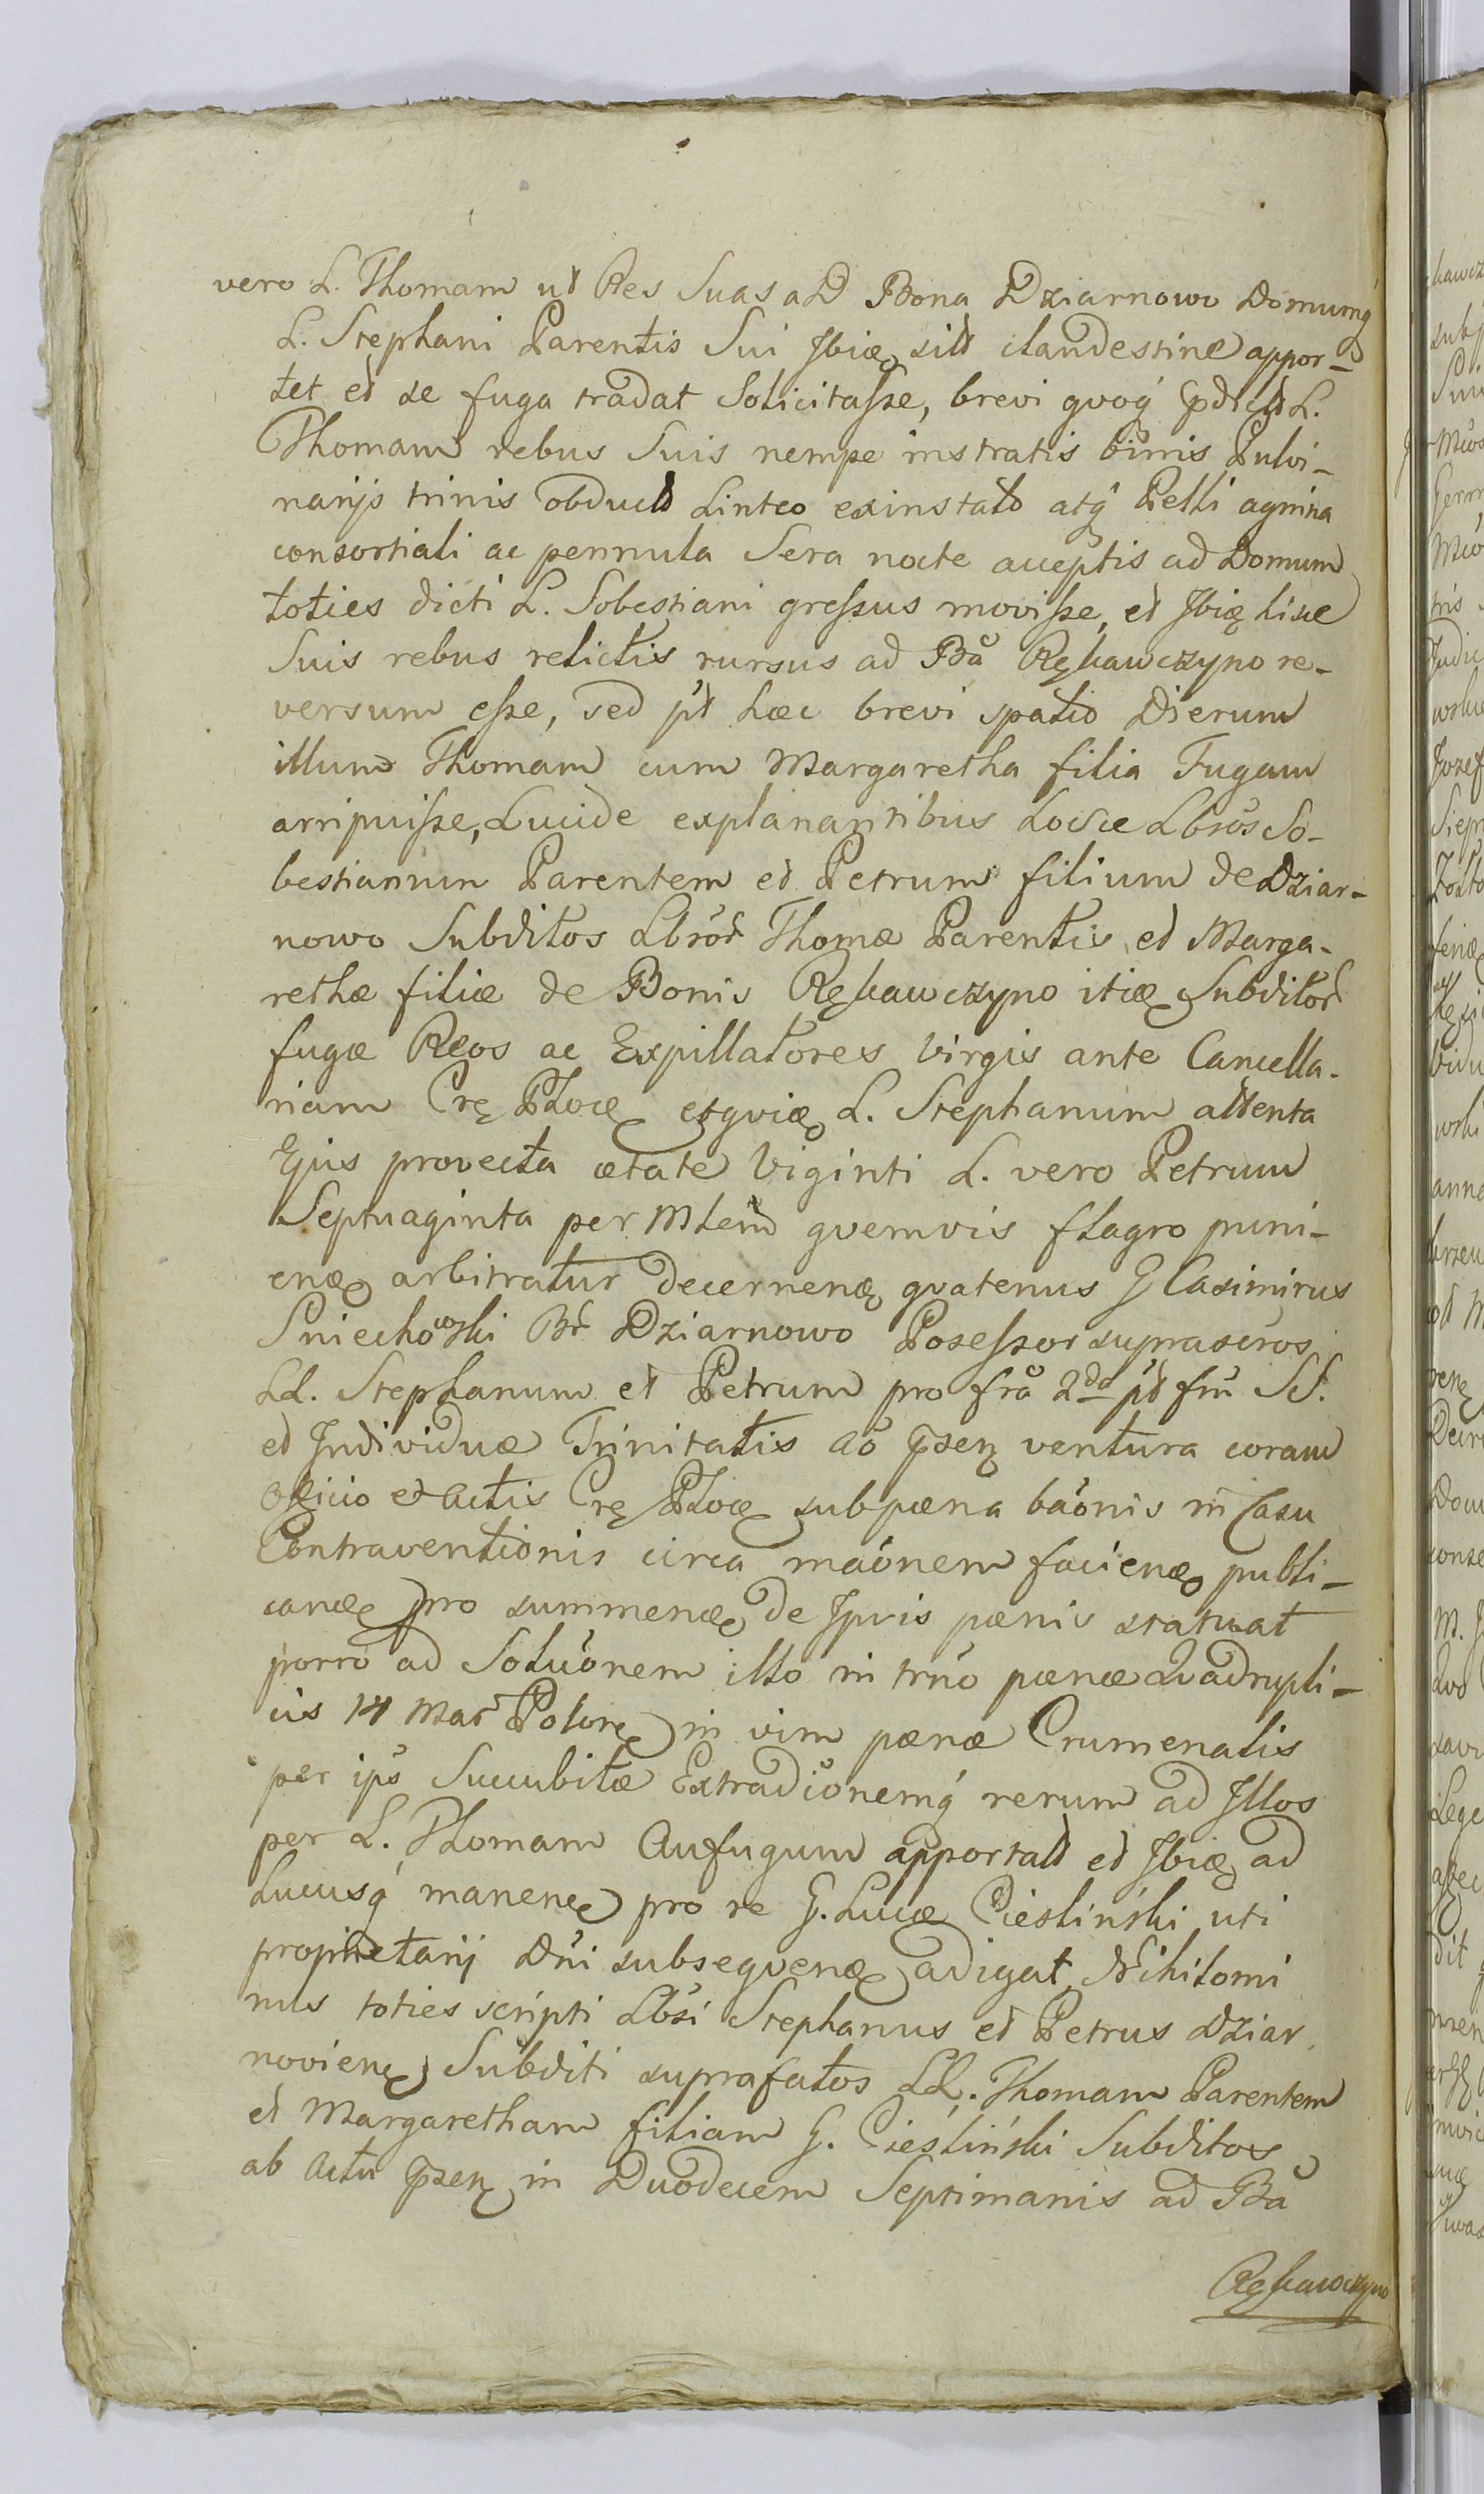 vero L. Thomam ut Res Suas ad Bona Dziarnowo Domumq́
L. Stephani Parentis Sui Ibię sitt clandestine appor-
tet et se fuga tradat Solicitasse, brevi quoq́ pdictt L.
Thomam rebus Suis nempe instratis binis Pulvi-
narijs trinis obductt Linteo exinstatt atq́ Pelli agnina
consortiali ac pennula Sera nocte acceptis ad Domum
toties dicti L. Sobestiani gressus movisse, et Ibię hisce
Suis rebus relictis rursus ad Bã Rękawczyno re-
versum esse, sed pt hæc brevi spatio Dierum
illum Thomam cum Margaretha filia Fugam
arripuisse, Lucide explanantibus Lbros So-
bestianum Parentem et Petrum filium de Dziar-
nowo Subditos Lbror Thomæ Parentis et Marga-
rethæ filiæ de Bonis Rękawczyno itię Subditor
fugæ Reos ac Expillatores Virgis ante Cancella-
riam Crę Płocę L. Stephanum attenta
Ejus provecta ætate Viginti L. vero Petrum
Septuaginta per Mtem quemvis flagro puni-
enę arbitratur decernenę quatenus G Casimirus
Sniechowski Br Dziarnowo Posessor suprascros
LL. Stephanum et Petrum pro frã 2da pt frũ SS.
et Individuæ Trinitatis aõ pzenę ventura coram
Officio et Actis Crę Płocę sub pæna baõnis in Casu
Contraventionis circa maõnem facienę publi-
canę pro summenę de Ipsis pænis statuat
porro ad Soluõnem illo in trno pænæ Quadrupli-
cis 14 Mar Polore in vim pænæ Crumenalis
per ips Succubitæ Extradiõnemq́ rerum ad Illos
per L. Thomam Aufugum apportatt et Ibię ad
hucusq́ manenę pro re G. Lucæ Cieslinski uti
proprietarij Dni subsequenę adigat Nihilomi
nus toties scripti Lbsi Stephanus et Petrus Dziar
novienę Subditi suprafatos LL. Thomam Parentem
et Margaretham filiam G. Cieślinski Subditos
ab Actu pzenę in Duodecem Septimanis ad Bã
Rękawczyno